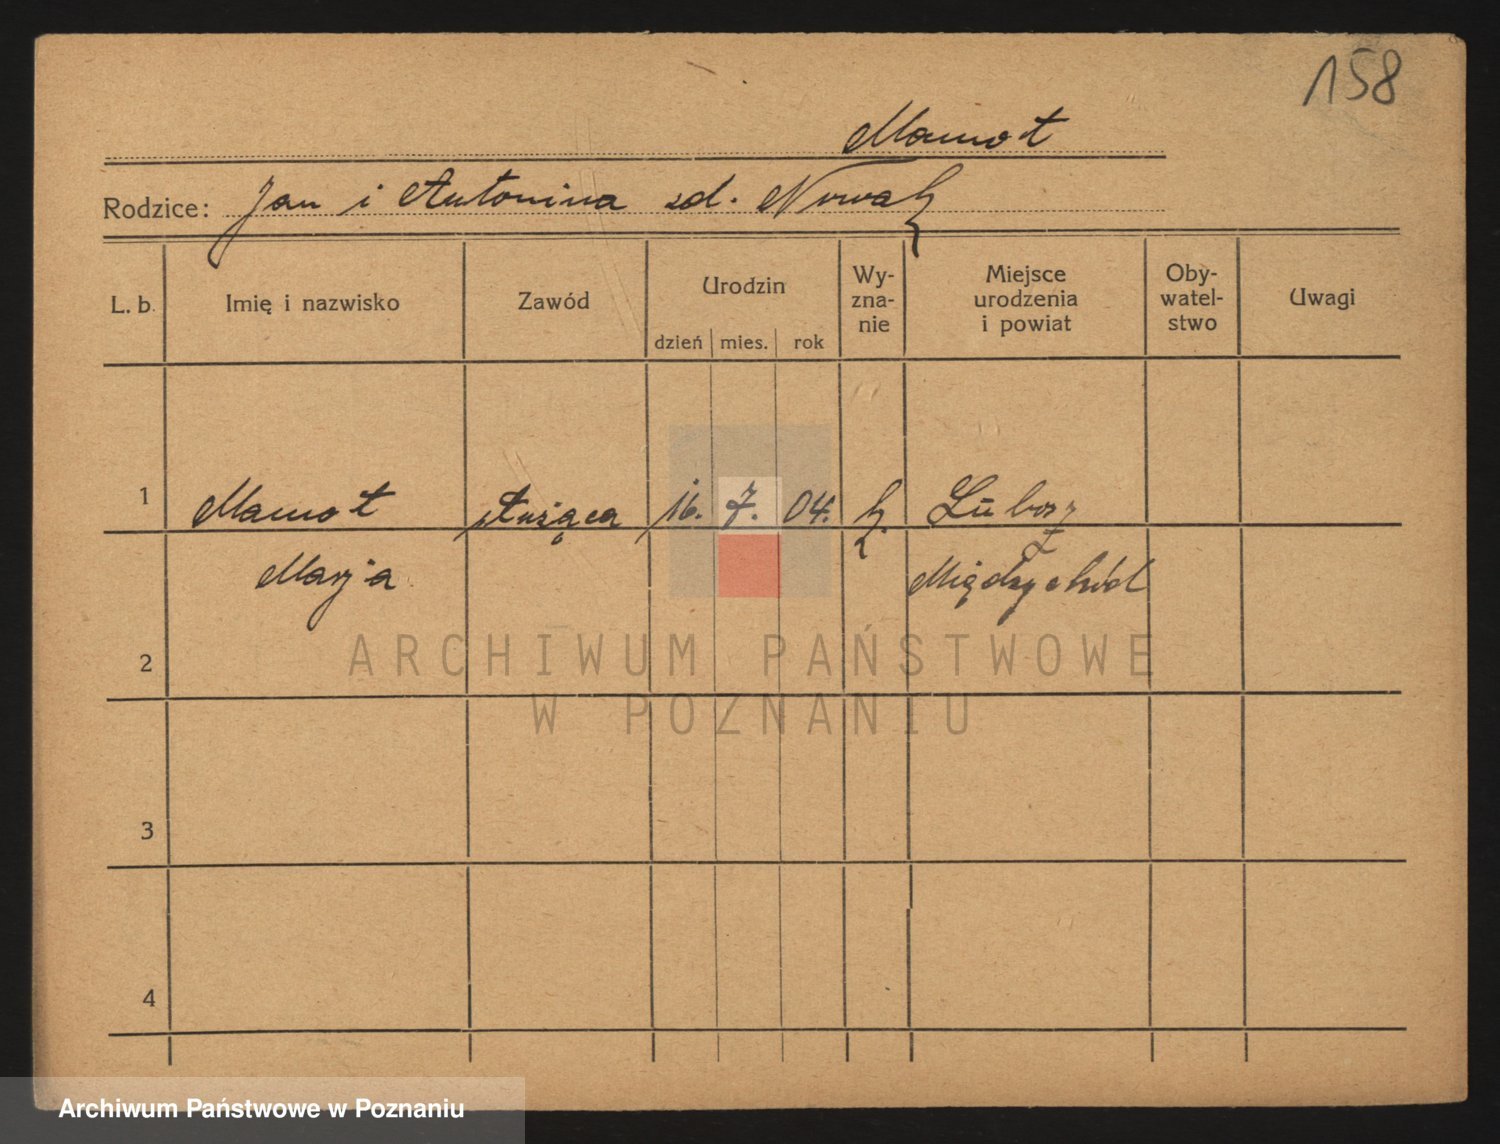 158
Mamot
Rodzice: Jan i Antonina zd. Nowak
L. b. Imię i nazwisko Zawód Urodzin dzień mies. rok Wy-zna-nie Miejsce urodzenia i powiat Oby-watel-stwo Uwagi
1 Mamot służąca 16. 7. 04. k. Lubosz
Marja Międzychód
2
3
4
ARCHIWUM PAŃSTWOWE
W POZNANIU
Archiwum Państwowe w Poznaniu